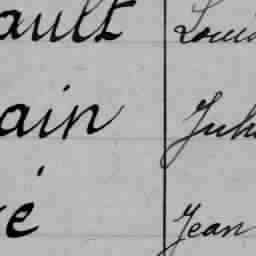 ault Loui
ain Juli
é Jean